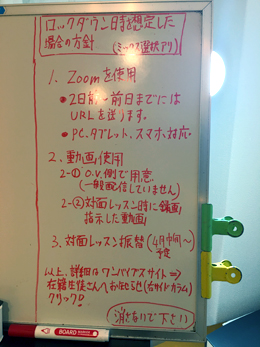 ロックダウン時を想定した
場合の方針 (ミックス選択アリ)
1. Zoomを使用
●2日前〜前日までには
URLを送ります。
●PC、タブレット、スマホ、対応
2. 動画使用
2-① O.V.側で用意
(一般配信していません)
2-② 対面レッスン時に録画
指示した動画
3. 対面レッスン振替(4月中旬〜
予定
以上、詳細はワンバイブスサイト⇒
在籍生徒さんへお知らせ(右サイドカラム)
クリック!
消さないで下さい
BOARD